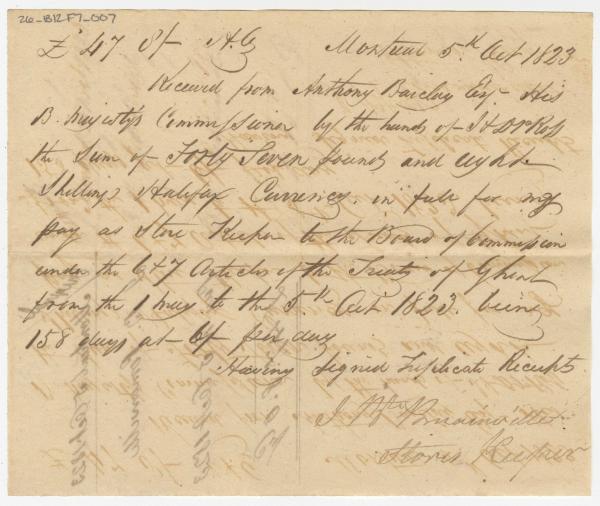 26-B12F7-007
£ 47 8/- H.C. Montreal 5.th Oct 1823
Received from Anthony Barclay Esq. His
B. Majesty's Commissioner by the hands of J & D Ross
the Sum of Forty Seven pounds and eight
Shillings Halifax Currency. in full for my
pay as Store Keeper to the Board of Commission
under the 6 & 7 Articles of the Treaty of Ghent
from the 1 May to the 5.th Oct 1823. being
158 days at 6/ per day
Having Signed Triplicate Receipts.
Stores Keeper